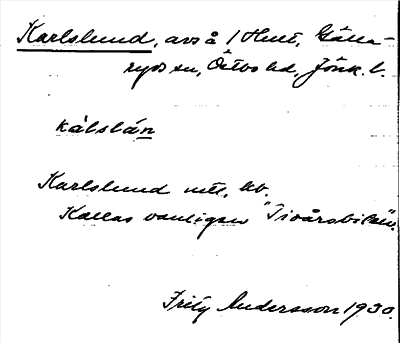 Karlslund, avs å 1 Hult, Gälla-
ryds sn, Östbo hd, Jönk. l.
kálslán
Karlslund utt. lb.
Kallas vanligen "Tivårsbilan".
Fritz Andersson 1930.